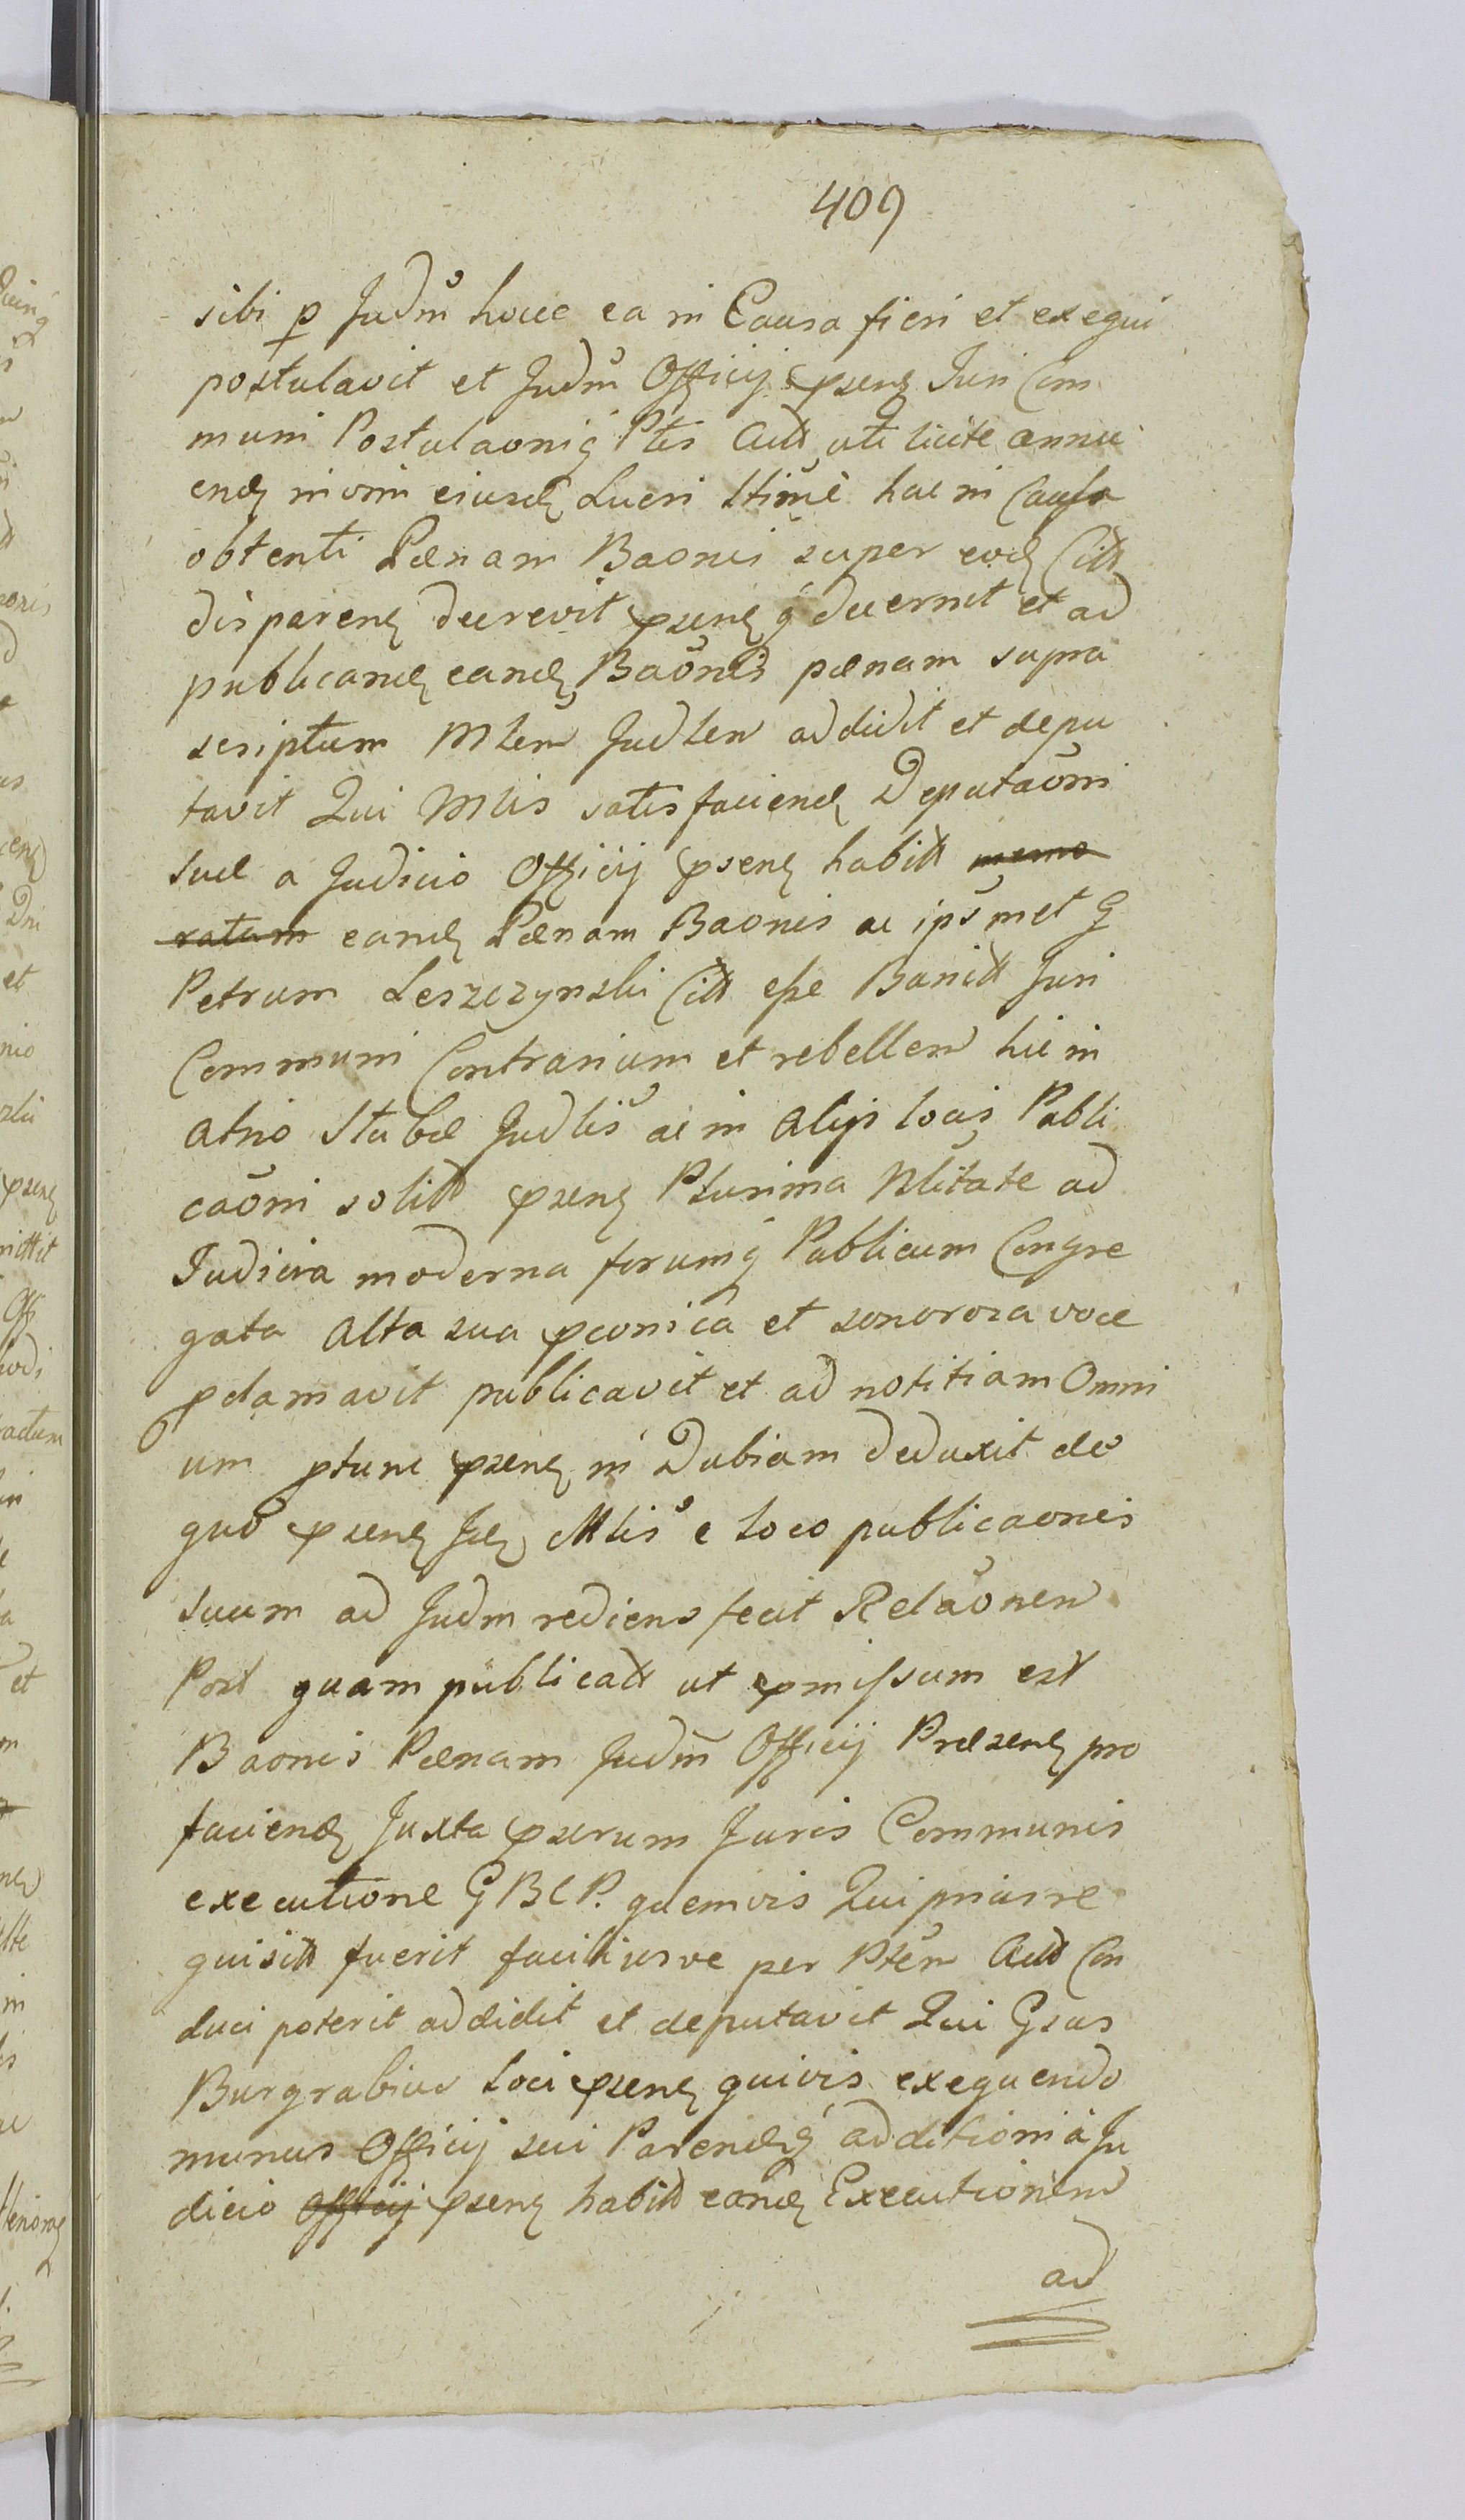 409
sibi p Judm hocce ea in Causa fieri et exequi
postulavit et Judm Officij psens Juri Com
muni Postulaoniq Ptis Actt uti licite annu
end in vim eiusd Lucri ttimè hac in Causa
obtenti Pænam Baonis super eod Citt
disparens decrevit psens q decernit et ad
publicand eand Baonis pænam supra
scriptum Mlem Judlem addidit et depu
tavit Qui Mlis satisfaciend Deputaoni
suæ a Judicio Officij psens habitt memo
ratam eand Pænam Baonis ac ipsmet G
Petrum Leszczynski Citt esse Banitt Juri
Communi Contrarium et rebellem hic in
atrio Stubæ Judlis ac in alijs locis Publi
caoni solitt psens Plurima Nblitate ad
Judicia moderna forumq Publicum Congre
gata alta sua pconica et sonorosa voce
pclamavit publicavit et ad notitiam Omni
um ptunc psens in Dubiam deduxit de
quo psens Jdem Mlis e loco publicaonis
suum ad Judm rediens fecit Relaonem
Post quam publicatt ut pmissum est
Baonis Pænam Judm Officij Præsens pro
faciend Juxta pscrum Juris Communis
executione G B L P. quemvis Qui prius re
quisitt fuerit faciliusve per Ptem Actt Con
duci poterit addidit et deputavit Qui Gsus
Burgrabius loci psens quivis exequendo
munus Officij sui Parendq additioni à Ju
dicio Officij psens habitt eand Executionem
ad